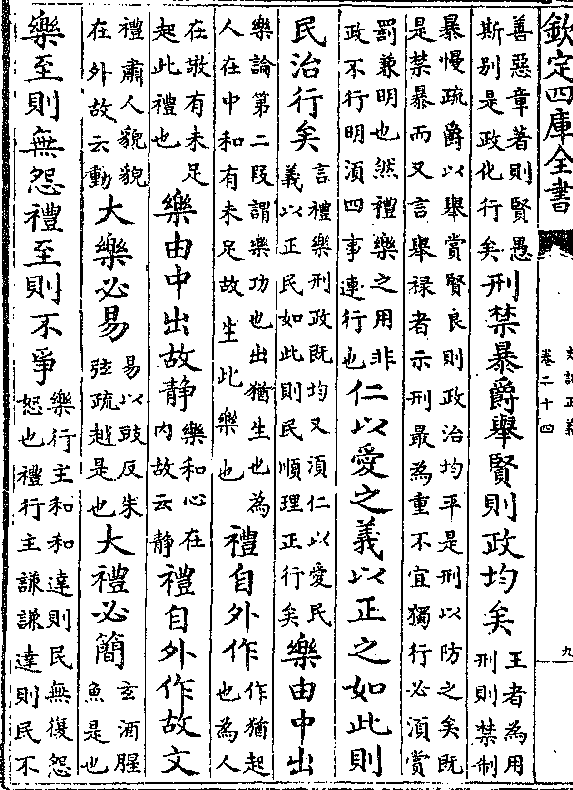 欽定四庫全書
史記正義
卷二十四
九
善惡章著則賢愚
斯别是政化行矣
刑禁暴爵舉賢則政均矣
王者為用
刑則禁制
暴慢疏爵以舉賞賢良則政治均平是刑以防之矣既
是禁暴而又言舉禄者示刑最為重不宜獨行必須賞
罰兼明也然禮樂之用非
政不行明須四事連行也
仁以愛之義以正之如此則
民治行矣
言禮樂刑政既均又須仁以愛民
義以正民如此則民順理正行矣
樂由中出
樂論第二段謂樂功也出猶生也為
人在中和有未足故生此樂也
禮自外作
作猶起
也為人
在敬有未足
起此禮也
樂由中出故静
樂和心在
内故云静
禮自外作故文
禮肅人貌貌
在外故云動
大樂必易
易以豉反朱
弦疏越是也
大禮必簡
玄酒腥
魚是也
樂至則無怨禮至則不爭
樂行主和和達則民無復怨
怒也禮行主謙謙達則民不